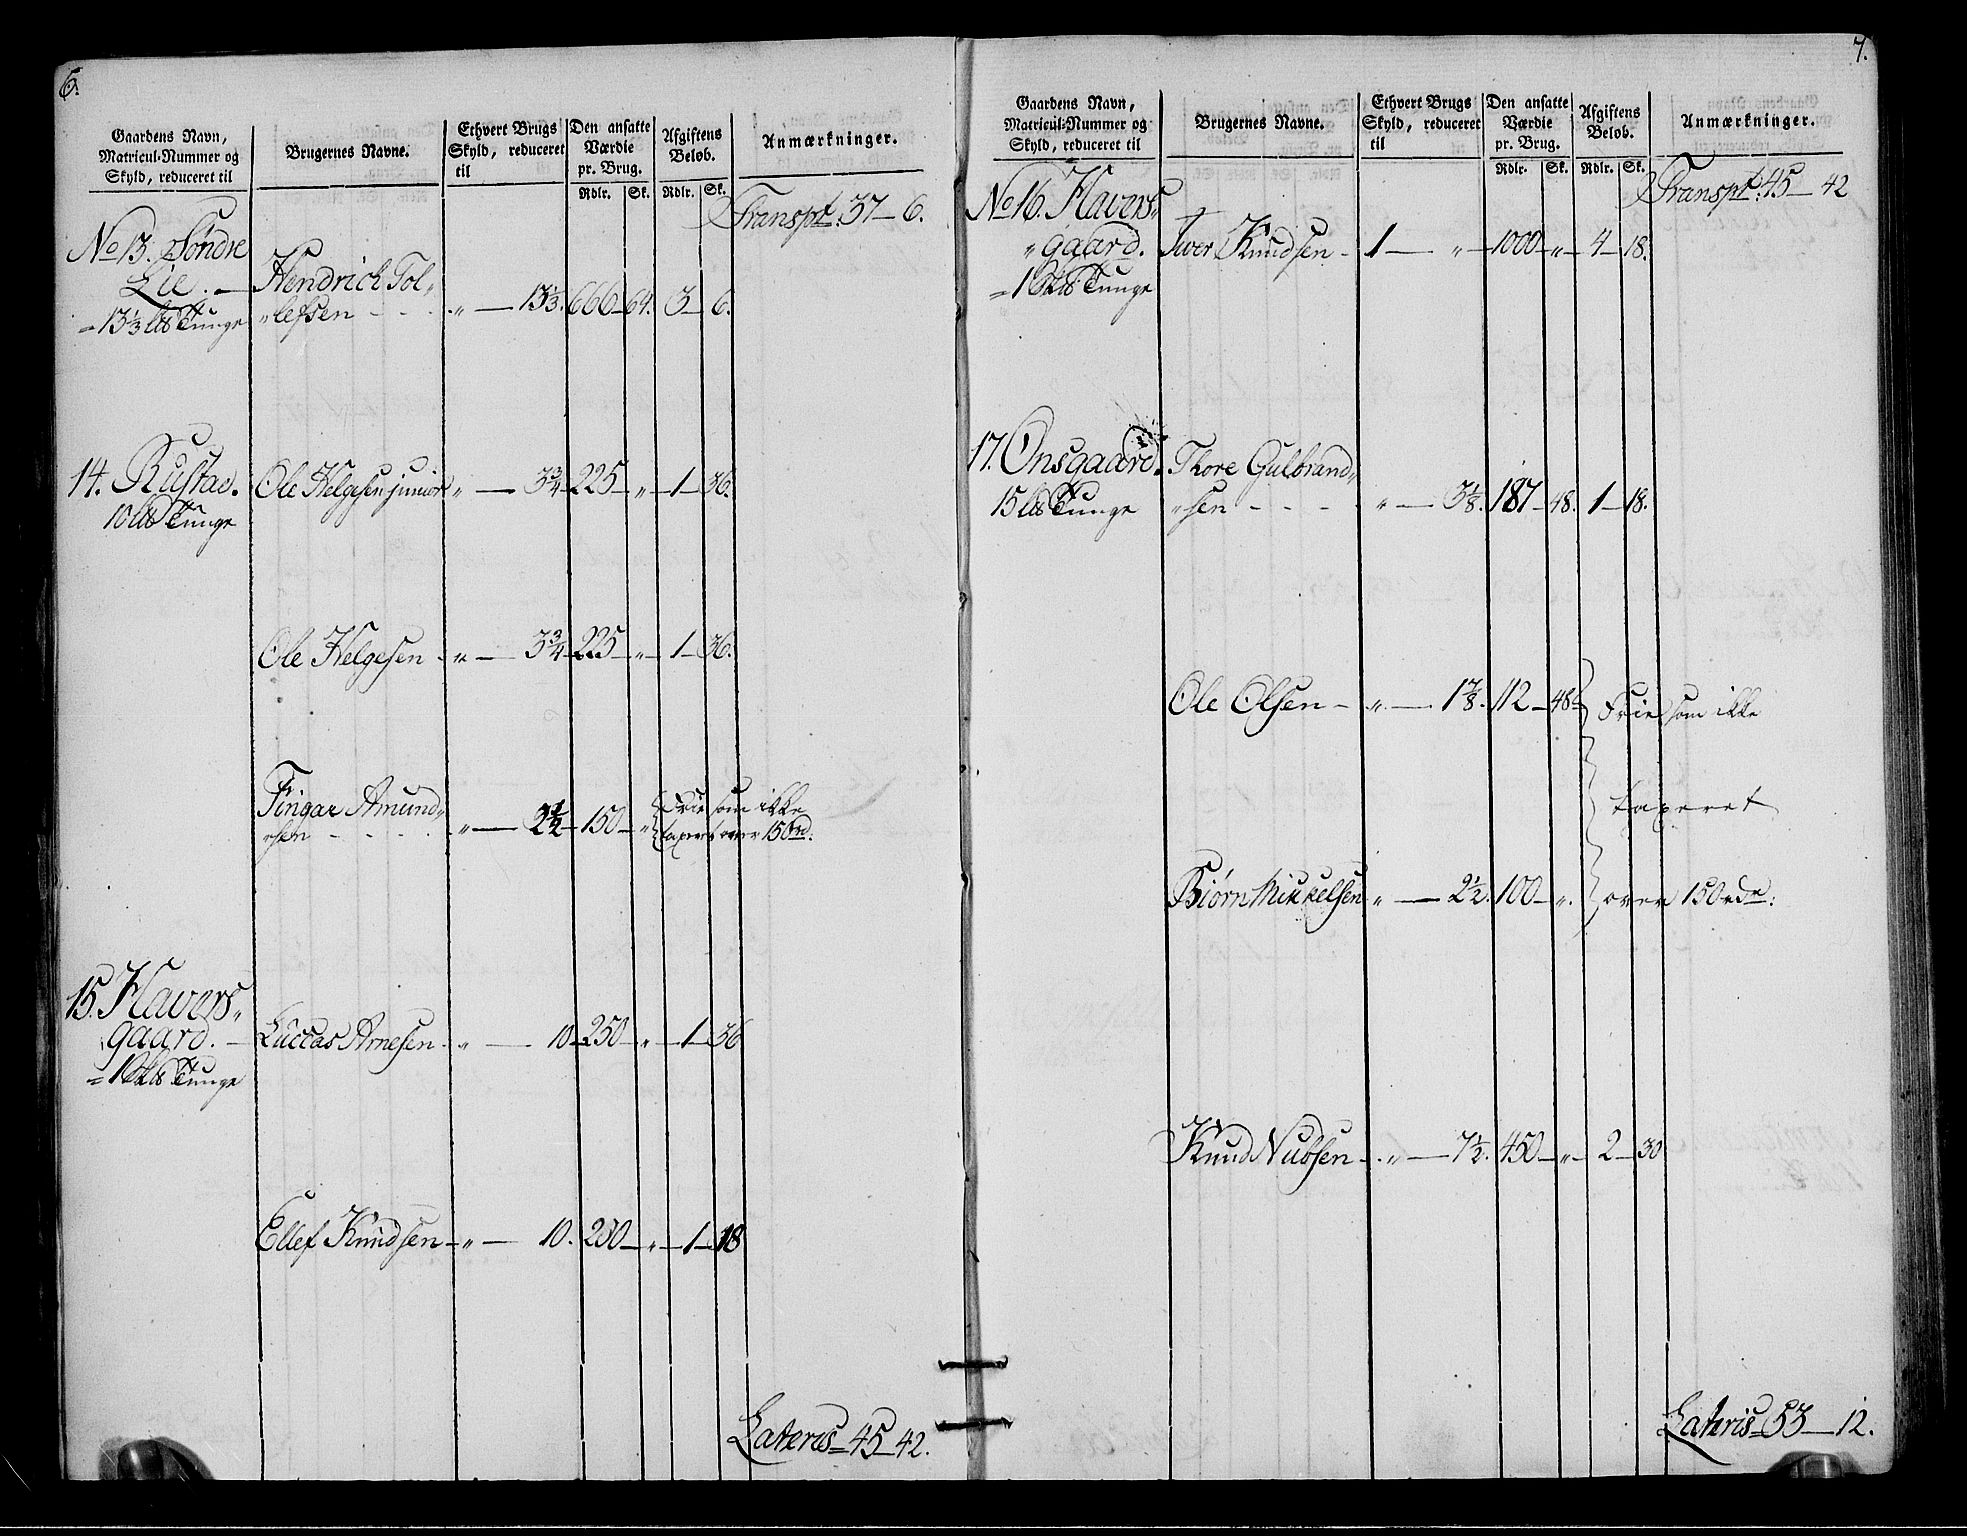 6.
Gaardens Navn,
Matricul-Nummer og
Skyld, reduceret til
Brugernes Navne.
Ethvert Brugs
Skyld, reduceret
til
Den ansatte
Værdie
pr. Brug.
Rdlr. Sk.
Afgiftens
Beløb.
Rdlr. Sk.
Anmærkninger.
Transpt. 37 — 6.
No 13. Søndre
Lie. — Hendrich Tol„
= 13 1/3 lb Tunge „lefsen - - - „ — 13 1/3. 666 — 64. 3 — 6.
14. Rustad. Ole Helgesen junior „ — 3 3/4 225 — „ — 1 — 36.
10 lb Tunge
Ole Helgesen - „ — 3 3/4 225 — „ — 1 — 36.
Fingar Amund„ Frie som ikke
„sen - - - - „ — 2 1/2 — 150 — „ taxeret over 150 rd:
15. Havers„
gaard. — Luccas Arnesen - „ — 10 — 250 — „ — 1 — 36
= 1 Tunge
Ellef Knudsen — „ — 10. 200 — „ — 1 — 18
Lateris = 45 — 42.
7.
Gaardens Navn,
Matricul-Nummer og
Skyld, reduceret til
Brugernes Navne.
Ethvert Brugs
Skyld, reduceret
til
Den ansatte
Værdie
pr. Brug.
Rdlr. Sk.
Afgiftens
Beløb.
Rdlr. Sk.
Anmærkninger.
Transpt. 45 — 42
No 16. Havers„
„gaard. Iwer Knudsen - 1 — „ — 1000 — „ — 4 — 18.
= 1 Tunge
17. Onsgaard. Thore Gulbrand„
15 lb Tunge „sen - - - - „ — 3 1/8. 187 — 48. 1 — 18.
Ole Olsen — „ — 1 7/8. 112 — 48 Frie som ikke
taxeret
Biørn Mikkelsen „ — 2 1/2. 100 — „. over 150 rdr:
Knud Nubsen — „ — 7 1/2. 450 — „ — 2 — 30
Lateris = 53 — 12.